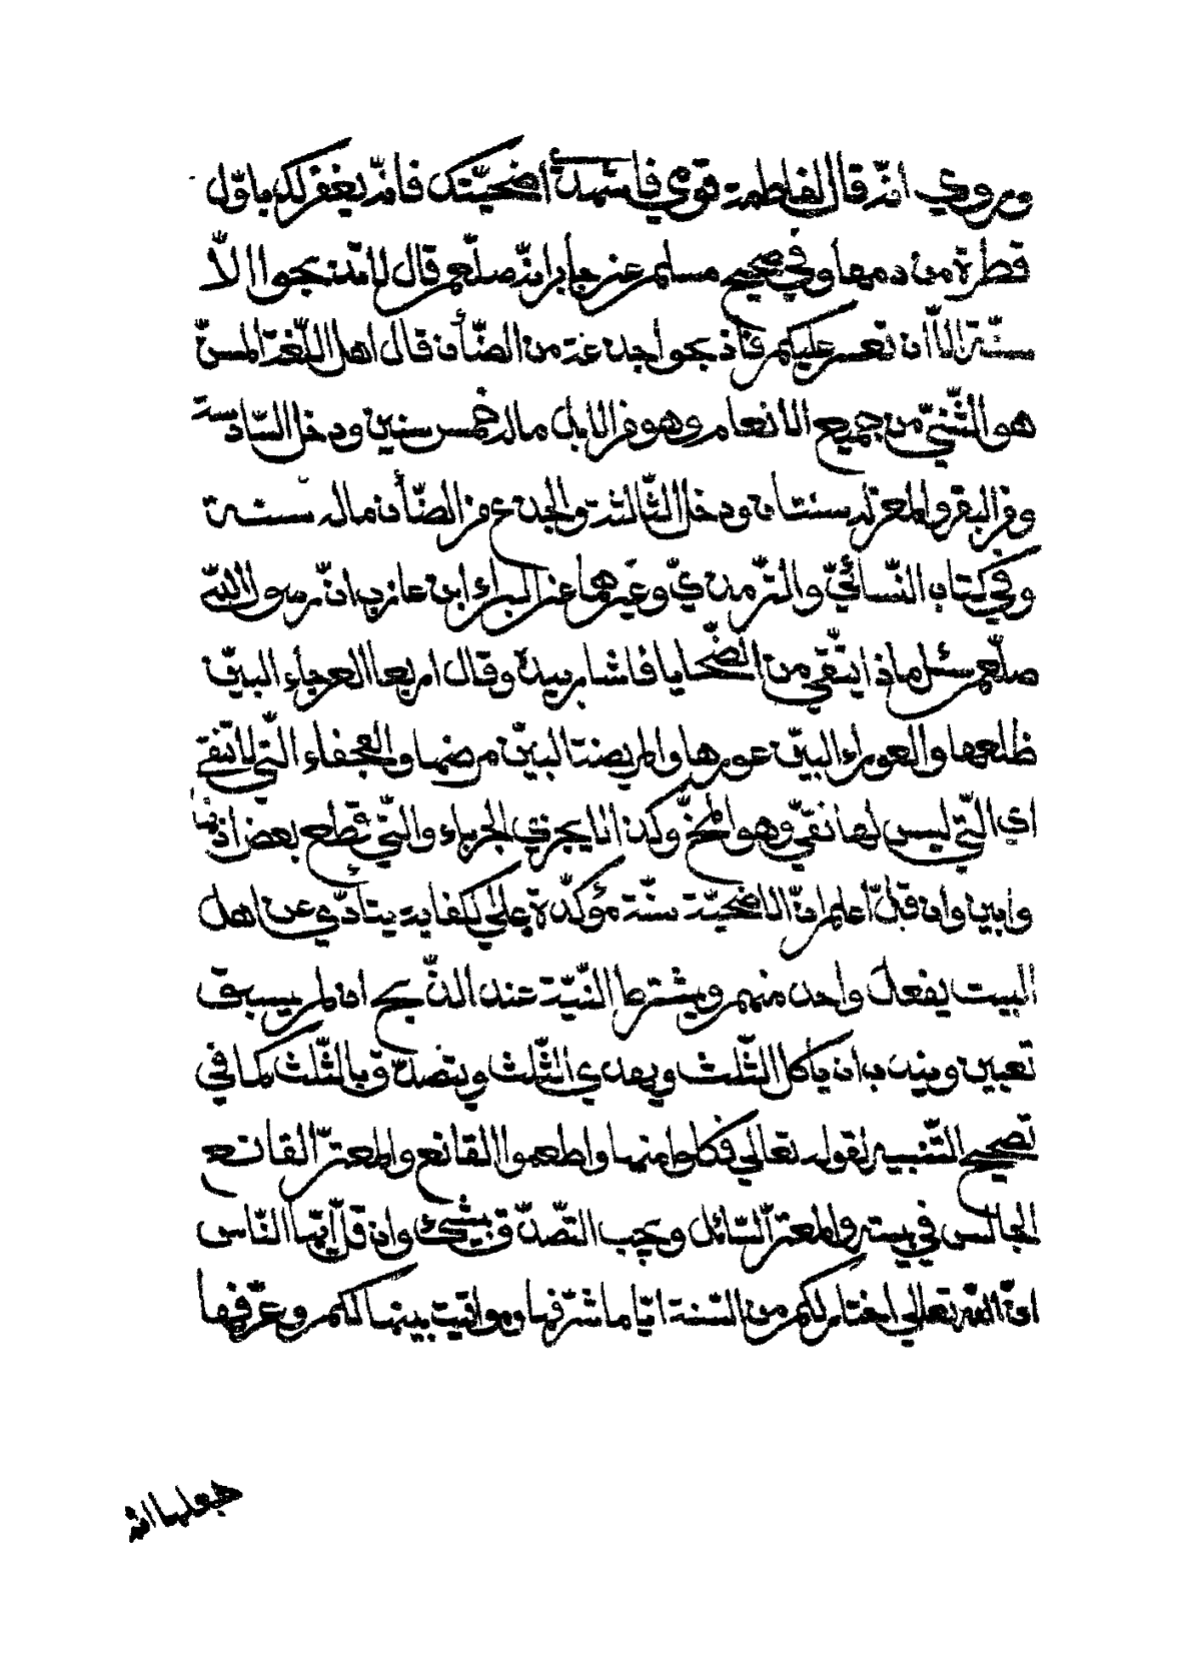 وروي انه قال لفاطمة قومي فاشهدي أضحيّتك فانه يغفر لك باوّل
قطرة من دمها وفي صحيح مسلم عن جابر انه صلعم قال لا تذبحوا الاّ
مسنّة الاّ ان تعسر عليكم فاذبحوا جذعة من الضّأن قال اهل اللّغة المسنّ
هو الثّنيّ من جميع الانعام وهو من الابل ماله خمس سنين ودخل السّادسة
ومن البقر والمعز له سنتان ودخل الثّالثة والجذع من الضّأن ماله سنة
وفي كتاب النّسائيّ والتّرمذيّ وغيرهما عن البراء ابن عازب انّ رسول اللّه
صلّعم سئل ماذا يتّقي من الضّحايا فاشار بيده وقال اربعا العرجاء البيّن
ظلعها والعوراء البيّن عورها والمريضة البيّن مرضها والعجفاء الّتي لا تنقي
اي الّتي ليس لها نقيّ وهو المخّ وكذا لا يجزي الجرباء والّتي قطع بعض اذنها
وابين وان قلّ اعلم انّ الاضحيّة سنّة مؤكّدة علي الكفاية يتأدّي عن اهل
البيت يفعل واحد منهم ويشترط النّيّة عند الذّبح ان لم يسبق
تعيين ويندب ان ياكل الثّلث ويهدي الثّلث ويتصدّق بالثّلث كما في
تصحيح التّنبيه لقوله تعالي فكلوا منها واطعموا القانع والمعترّ القانع
الجالس في بيته والمعترّ السّائل ويجب التّصدّق بشيئ وان قلّ ايّها النّاس
انّ اللّه تعالي اختار لكم من السّنة ايّاما شرّفها ومواقيت بينها لكم وعرّفها
جعلها الله